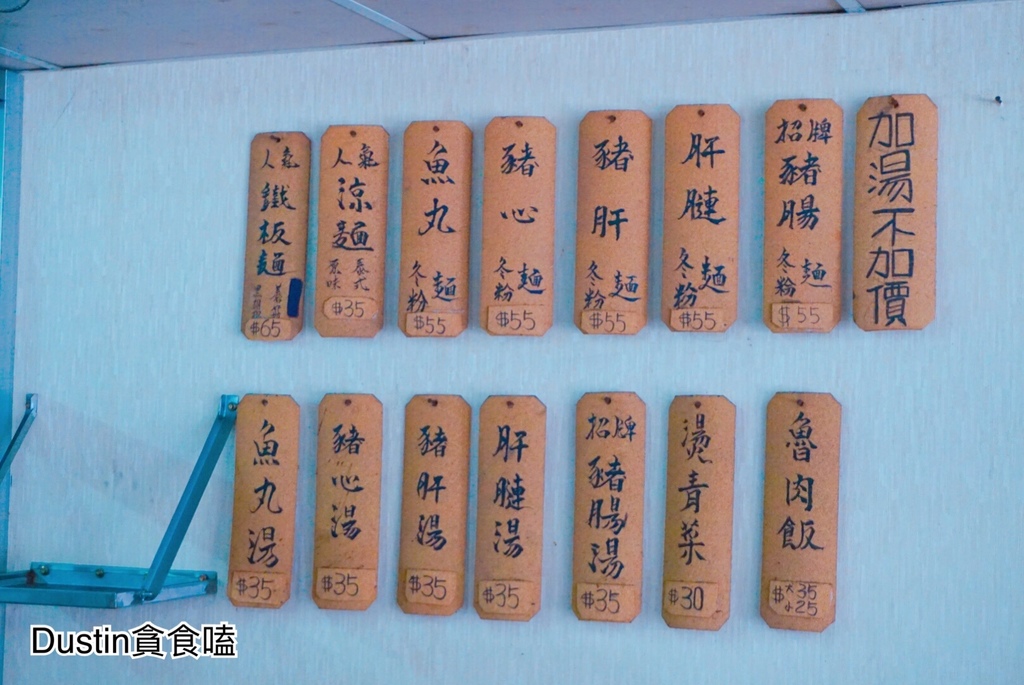 加湯不加價
招牌
豬腸
冬粉 麵
$55
肝膁
冬粉 麵
$55
豬肝
冬粉 麵
$55
豬心
冬粉 麵
$55
魚丸
冬粉 麵
$55
人氣
涼麵
泰式
原味
$35
人氣
鐵板麵
$65
魯肉飯
$大35
小25
燙青菜
$30
招牌
豬腸湯
$35
肝膁湯
$35
豬肝湯
$35
豬心湯
$35
魚丸湯
$35
Dustin貪食嗑